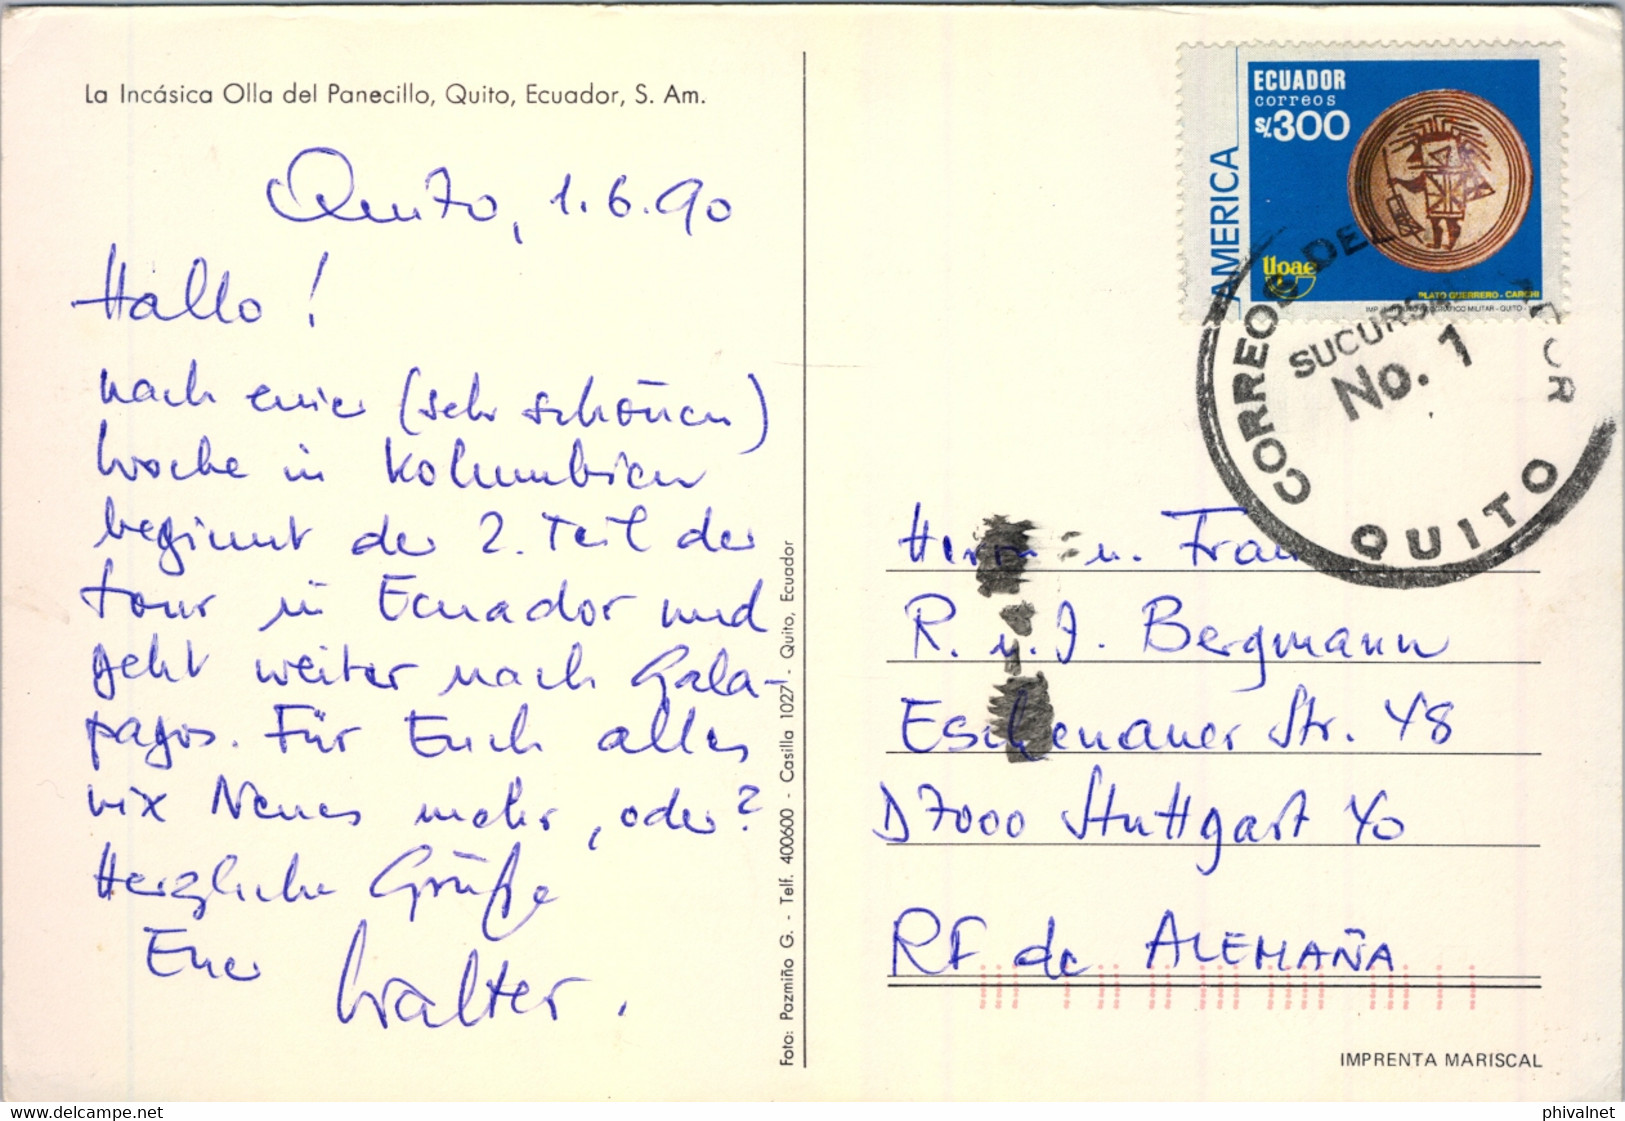 La Incásica Olla del Panecillo, Quito, Ecuador, S. Am.
Quito, 1.6.90
Hallo!
nach einer (sehr schönen)
Woche in Kolumbien
beginnt der 2. Teil der
Tour in Ecuador und
geht weiter nach Gala-
pagos. Für Euch alles
nix Neues mehr, oder?
Herzliche Grüße
Euer
Walter.
Foto: Pazmiño G. - Telf. 400600 - Casilla 1027 - Quito, Ecuador
ECUADOR
correos
S/.300
AMERICA
UPAE
PLATO GUERRERO - CARCHI
CORREOS DEL
SUCURSAL
No. 1
QUITO
Herrn u. Frau
R. u. J. Bergmann
Eschenauer Str. 48
D 7000 Stuttgart 40
RF de ALEMAÑA
IMPRENTA MARISCAL
www.delcampe.net
phivalnet